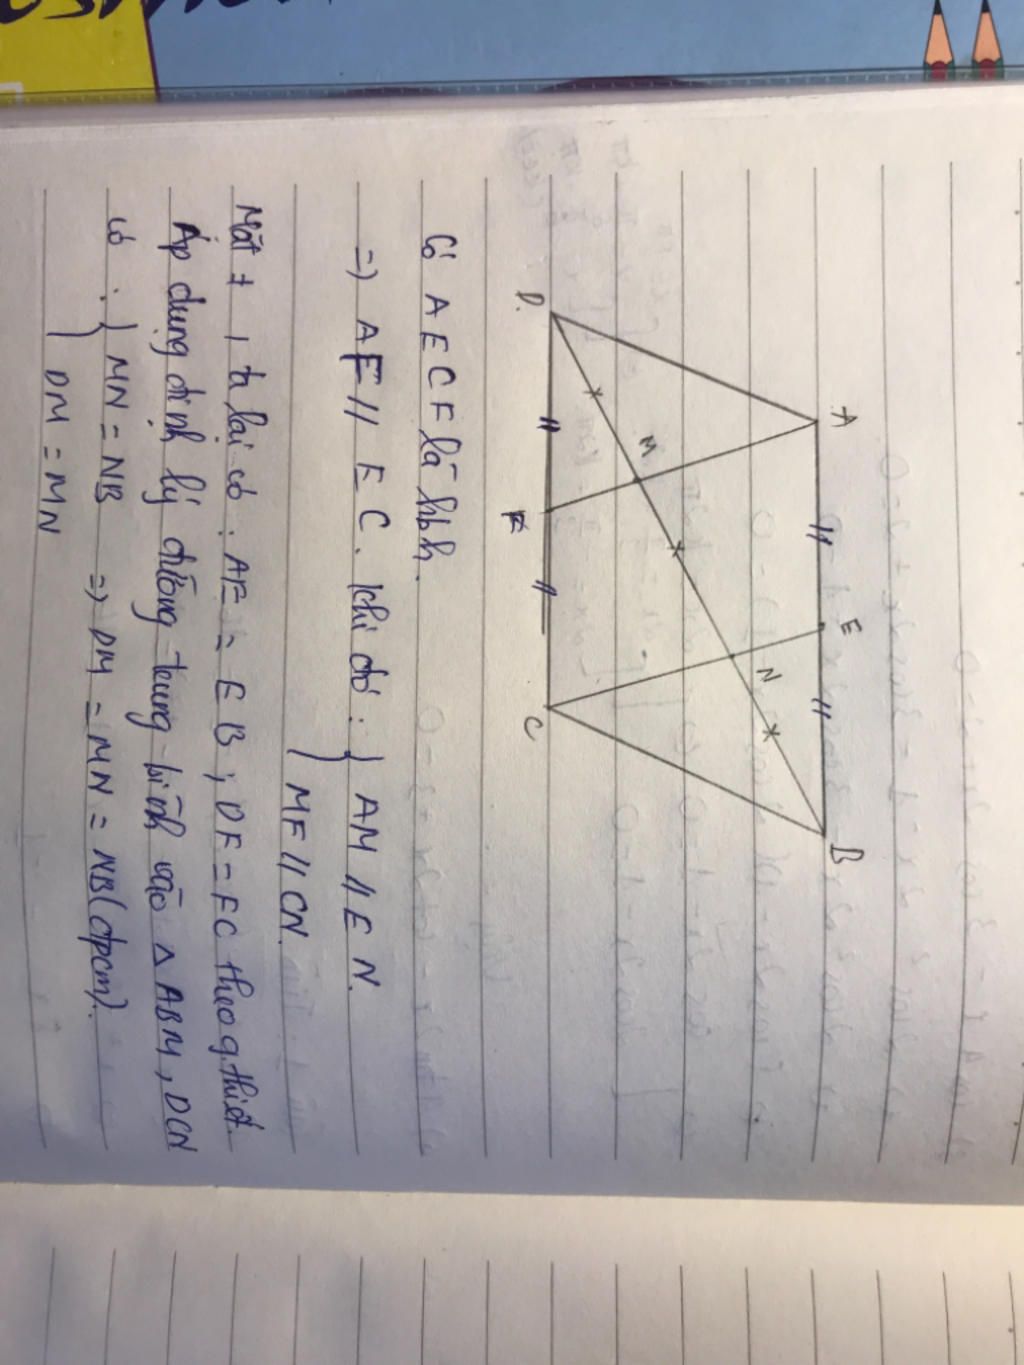 A E B
M N
D F C
Có AECF là hbh.
=> AF // EC. Khi đó : } AM // EN.
MF // CN.
Mặt ≠, ta lại có : AE = EB ; DF = FC theo g.thiết.
Áp dụng định lý đường trung bình vào Δ ABM, DCN
có : } MN = NB => DM = MN = NB (đpcm).
DM = MN